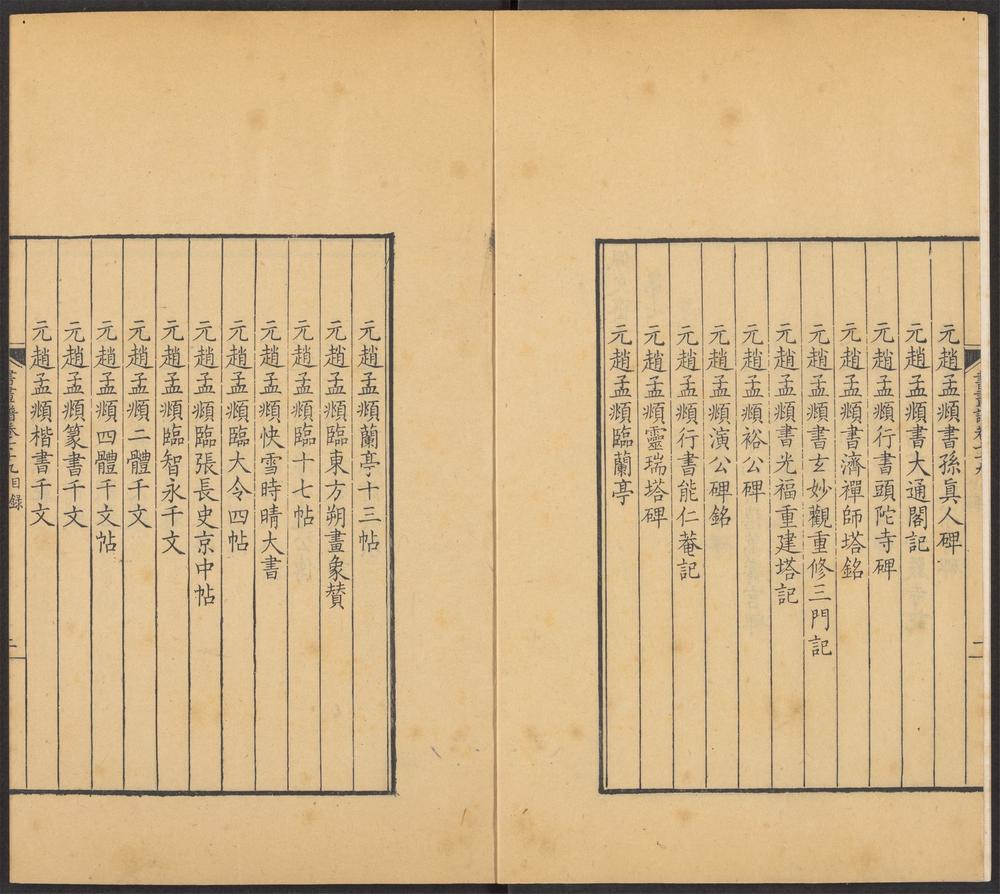 元趙孟頫書孫眞人碑
元趙孟頫書大通閣記
元趙孟頫行書頭陀寺碑
元趙孟頫書濟禪師塔銘
元趙孟頫書玄妙觀重修三門記
元趙孟頫書光福重建塔記
元趙孟頫裕公碑
元趙孟頫演公碑銘
元趙孟頫行書能仁菴記
元趙孟頫靈瑞塔碑
元趙孟頫臨蘭亭
元趙孟頫蘭亭十三帖
元趙孟頫臨東方朔畫象贊
元趙孟頫臨十七帖
元趙孟頫快雪時晴大書
元趙孟頫臨大令四帖
元趙孟頫臨張長史京中帖
元趙孟頫臨智永千文
元趙孟頫二體千文
元趙孟頫四體千文帖
元趙孟頫篆書千文
元趙孟頫楷書千文
書畫譜卷七十九目錄 二